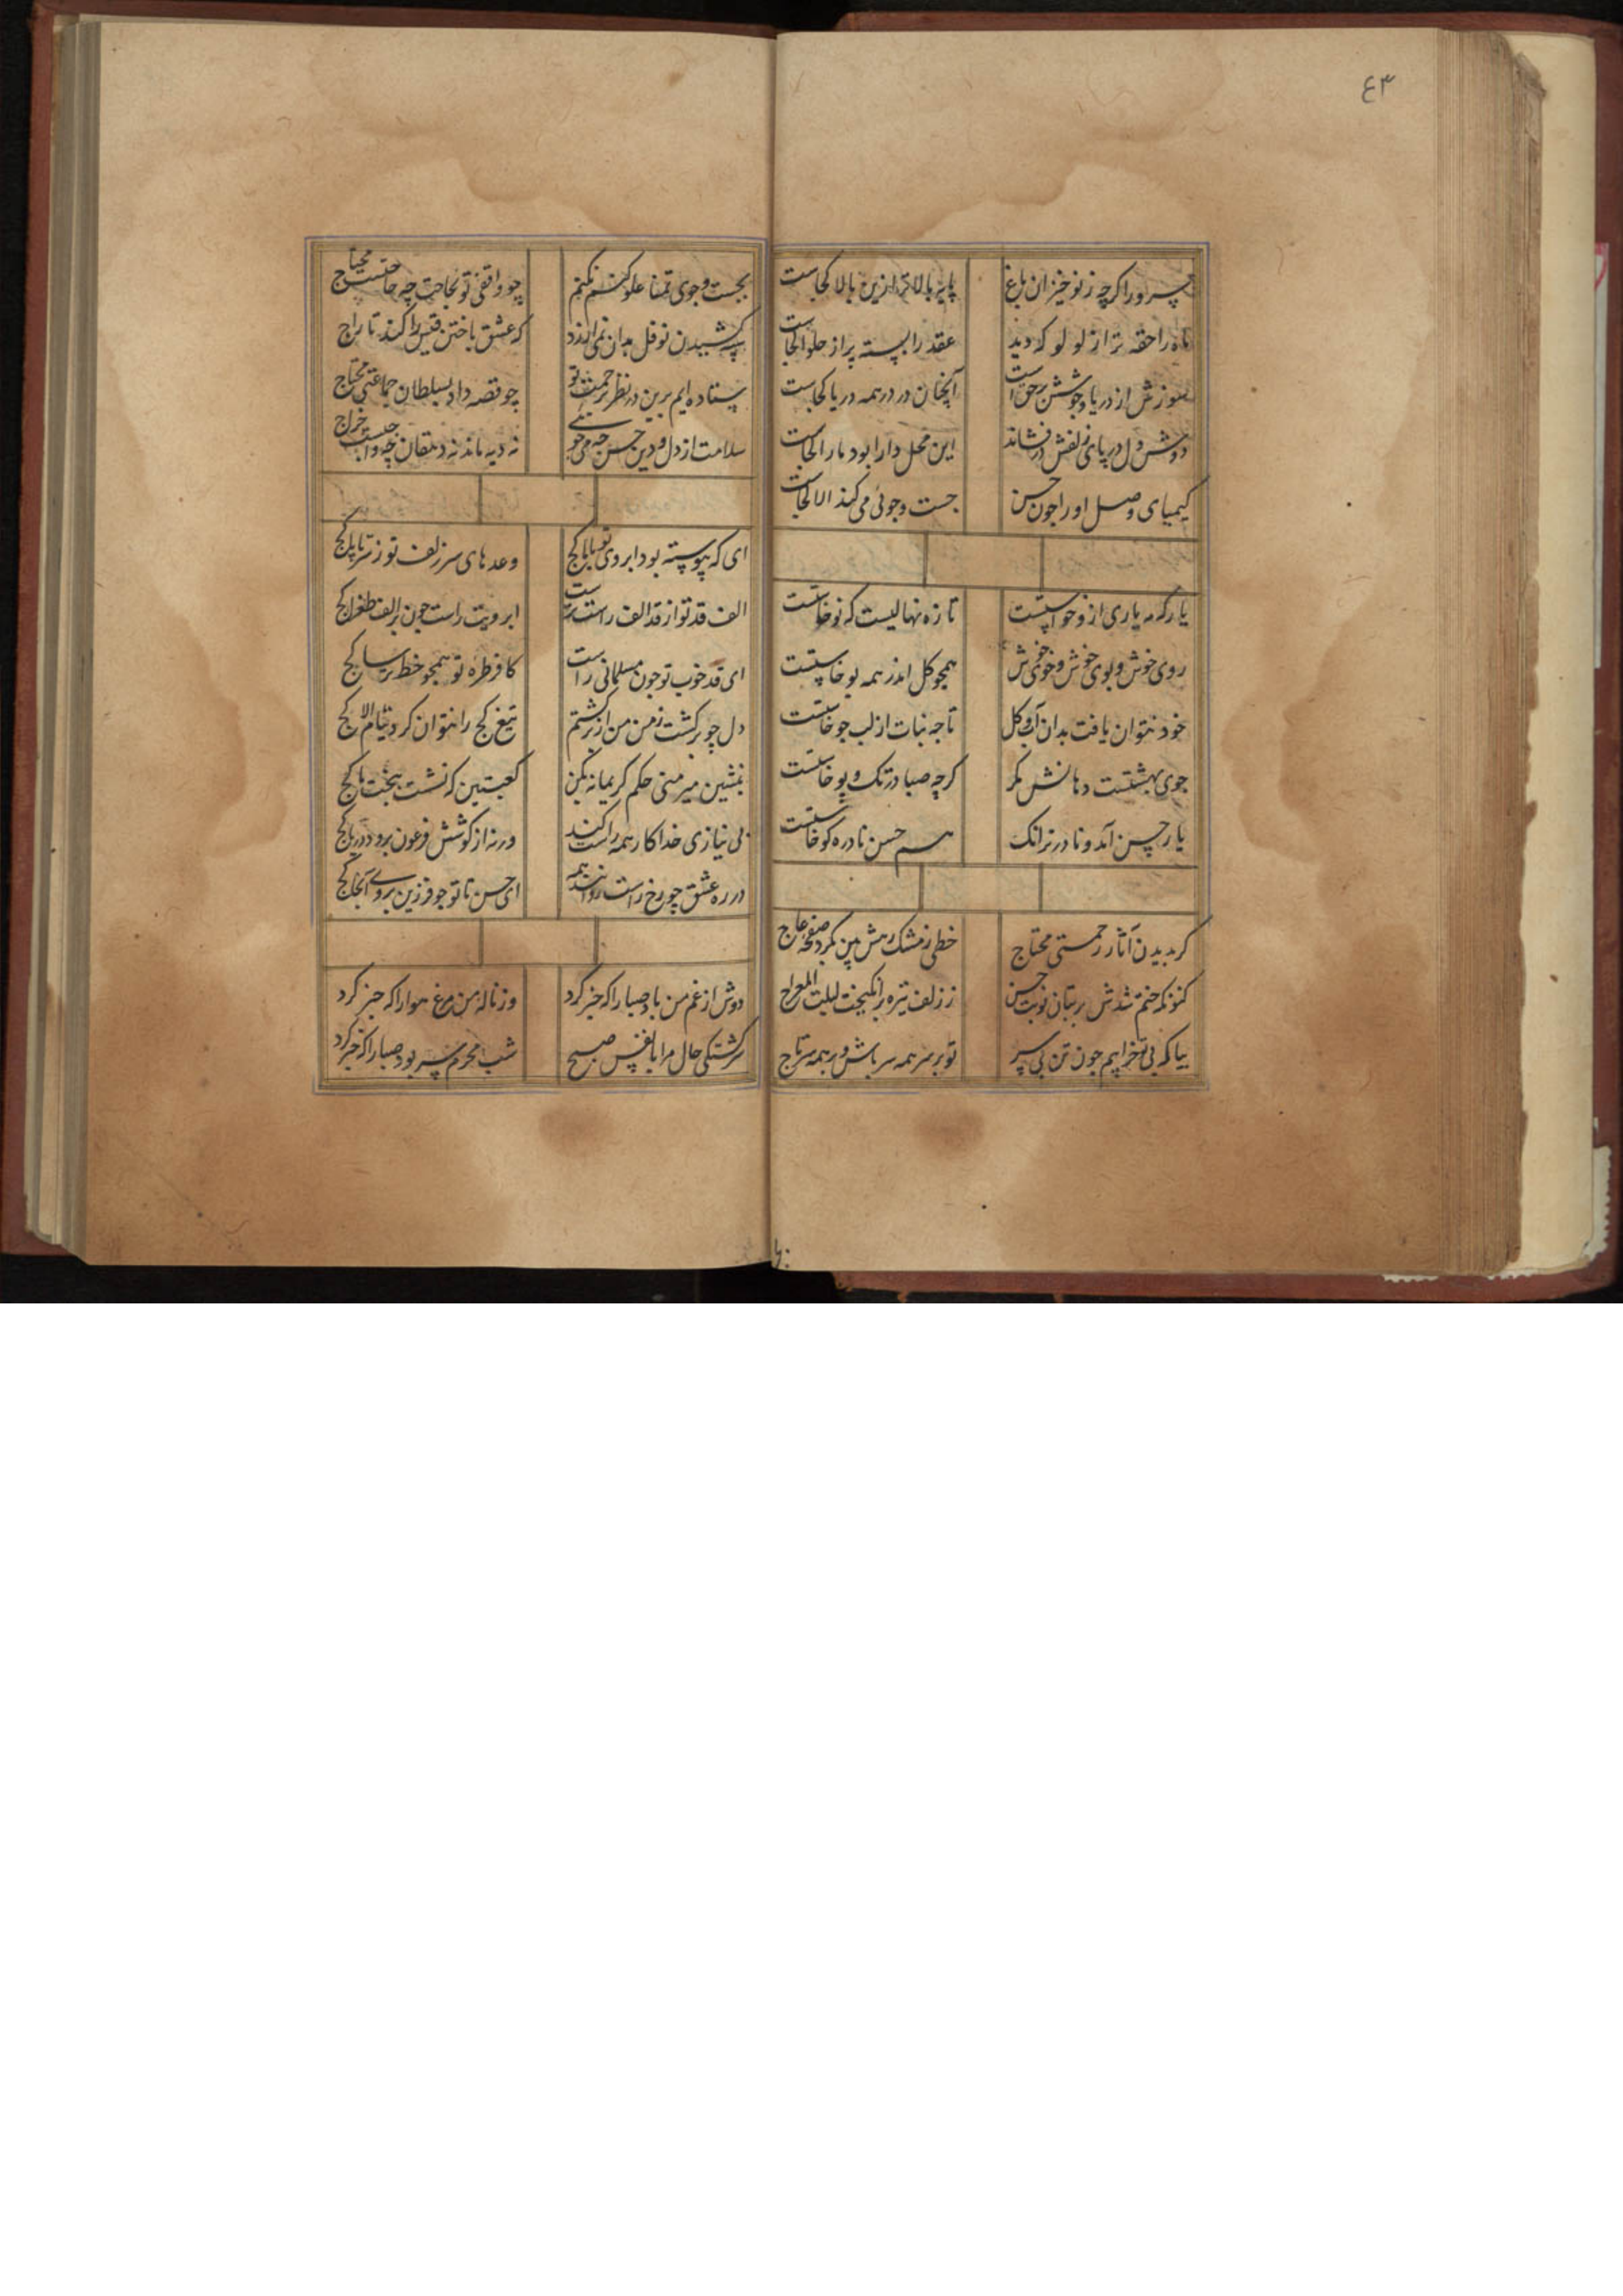 ٤٣
سرو را کرچه ز نوخیزان باغ پایه بالاتر ازین بالا کجاست
ماه را حقه تر از لولو که دید عقد را پسته پر از حلوا کجاست
از دریا و جوشش برحق است آنچنان در در همه دریا کجاست
دوش دل در پای زلفش درفشاند این محل دارا بود ما را کجاست
کیمیای وصل او را جون حسن جست و جوئی می کند الا کجاست
یار که مه یاری ازو خواستست تازه نهالیست که نو خاستست
روی خوش و بوی خوش و خوی خوش همجو کل اندر همه بو خاستست
خود نتوان یافت بدان آب و کل تا جه نبات از لب جو خاستست
جوی بهشتست دهانش مکر کرچه صبا در تک و پو خاستست
یار حسن آمد و نادر تر انک هم حسن نادره کو خاستست
کر بدیدن آثار رحمتی محتاج خطی ز مشک رهش بین بکرد صفحه عاج
کنونکه ختم شدش بر بتان نوبت حسن ز زلف تیره برانکیخت لیلت المعراج
بیا که بی تو خرابیم جون تن بی سر تو بر سر همه سر باش و بر همه سر تاج
بجست و جوی تمنا علو کنم نکنم چو واقفی تو بحاجت چه حاجتست محتاج
سپه کشیدن نوفل بدان نمی ارزد که عشق باختن قیس را کند تاراج
ستاده ایم برین در نظر برحمت تو چو قصه داد بسلطان جماعتی محتاج
سلامت از دل و دین حسن چه می جویی نه دیه ماند نه دهقان چه واجبست خراج
ای که پیوسته بود ابروی تو با ما کج وعدهای سر زلف تو ز سر تا پا کج
الف قد تو از قد الف راست ترست ابرویت راست جون بر الف طغرا کج
ای قد خوب تو جون مسلمانی راست کافر طره تو همجو خط ترسا کج
دل چو برکشت ز من من از برکشتم تیغ کج را نتوان کرد نیام الا کج
بنشین میر منی حکم کریمانه بکن کعبتین که نشست ببخت ما کج
بی نیازی خدا کار همه راست کند ورنه از کوشش فرعون برود دریا کج
در ره عشق چو رخ راست روانند همه ای حسن تا تو جو فرزین نروی آنجا کج
دوش از غم من باد صبا را که خبر کرد وز ناله من مرغ هوا را که خبر کرد
سرکشتکی حال مرا با نفس صبح شب محرم سر بود صبا را که خبر کرد